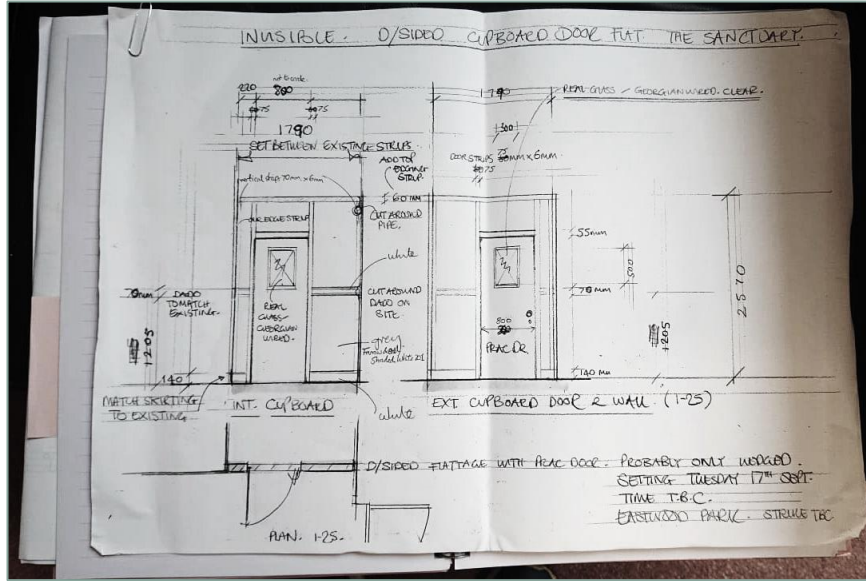 INVISIBLE. D/SIDED CUPBOARD DOOR FLAT. THE SANCTUARY.
220
not to scale
800
75
75
1790
SET BETWEEN EXISTING STRIPS.
ADD TOP
EDGING
STRIP.
vertical strips 70mm x 6mm
60 MM
OUR EDGE STRIP
CUT AROUND
PIPE.
white
70mm
DADO
TO MATCH
EXISTING.
REAL
GLASS
GEORGIAN
WIRED.
CUT AROUND
DADO ON
SITE.
1205
grey
140
MATCH SKIRTING
TO EXISTING
INT. CUPBOARD
white
1790
REAL GLASS - GEORGIAN WIRED. CLEAR.
300
DOOR STRIPS 75mm x 6mm.
75
55mm
500
70 mm
800
PRAC DR
140 mm
1205
2570
EXT CUPBOARD DOOR & WALL. (1-25)
D/SIDED FLATTAGE WITH PRAC DOOR. PROBABLY ONLY WEDGED.
SETTING TUESDAY 17TH SEPT.
TIME T.B.C.
EASTWOOD PARK. STRIKE TBC.
PLAN. 1-25.